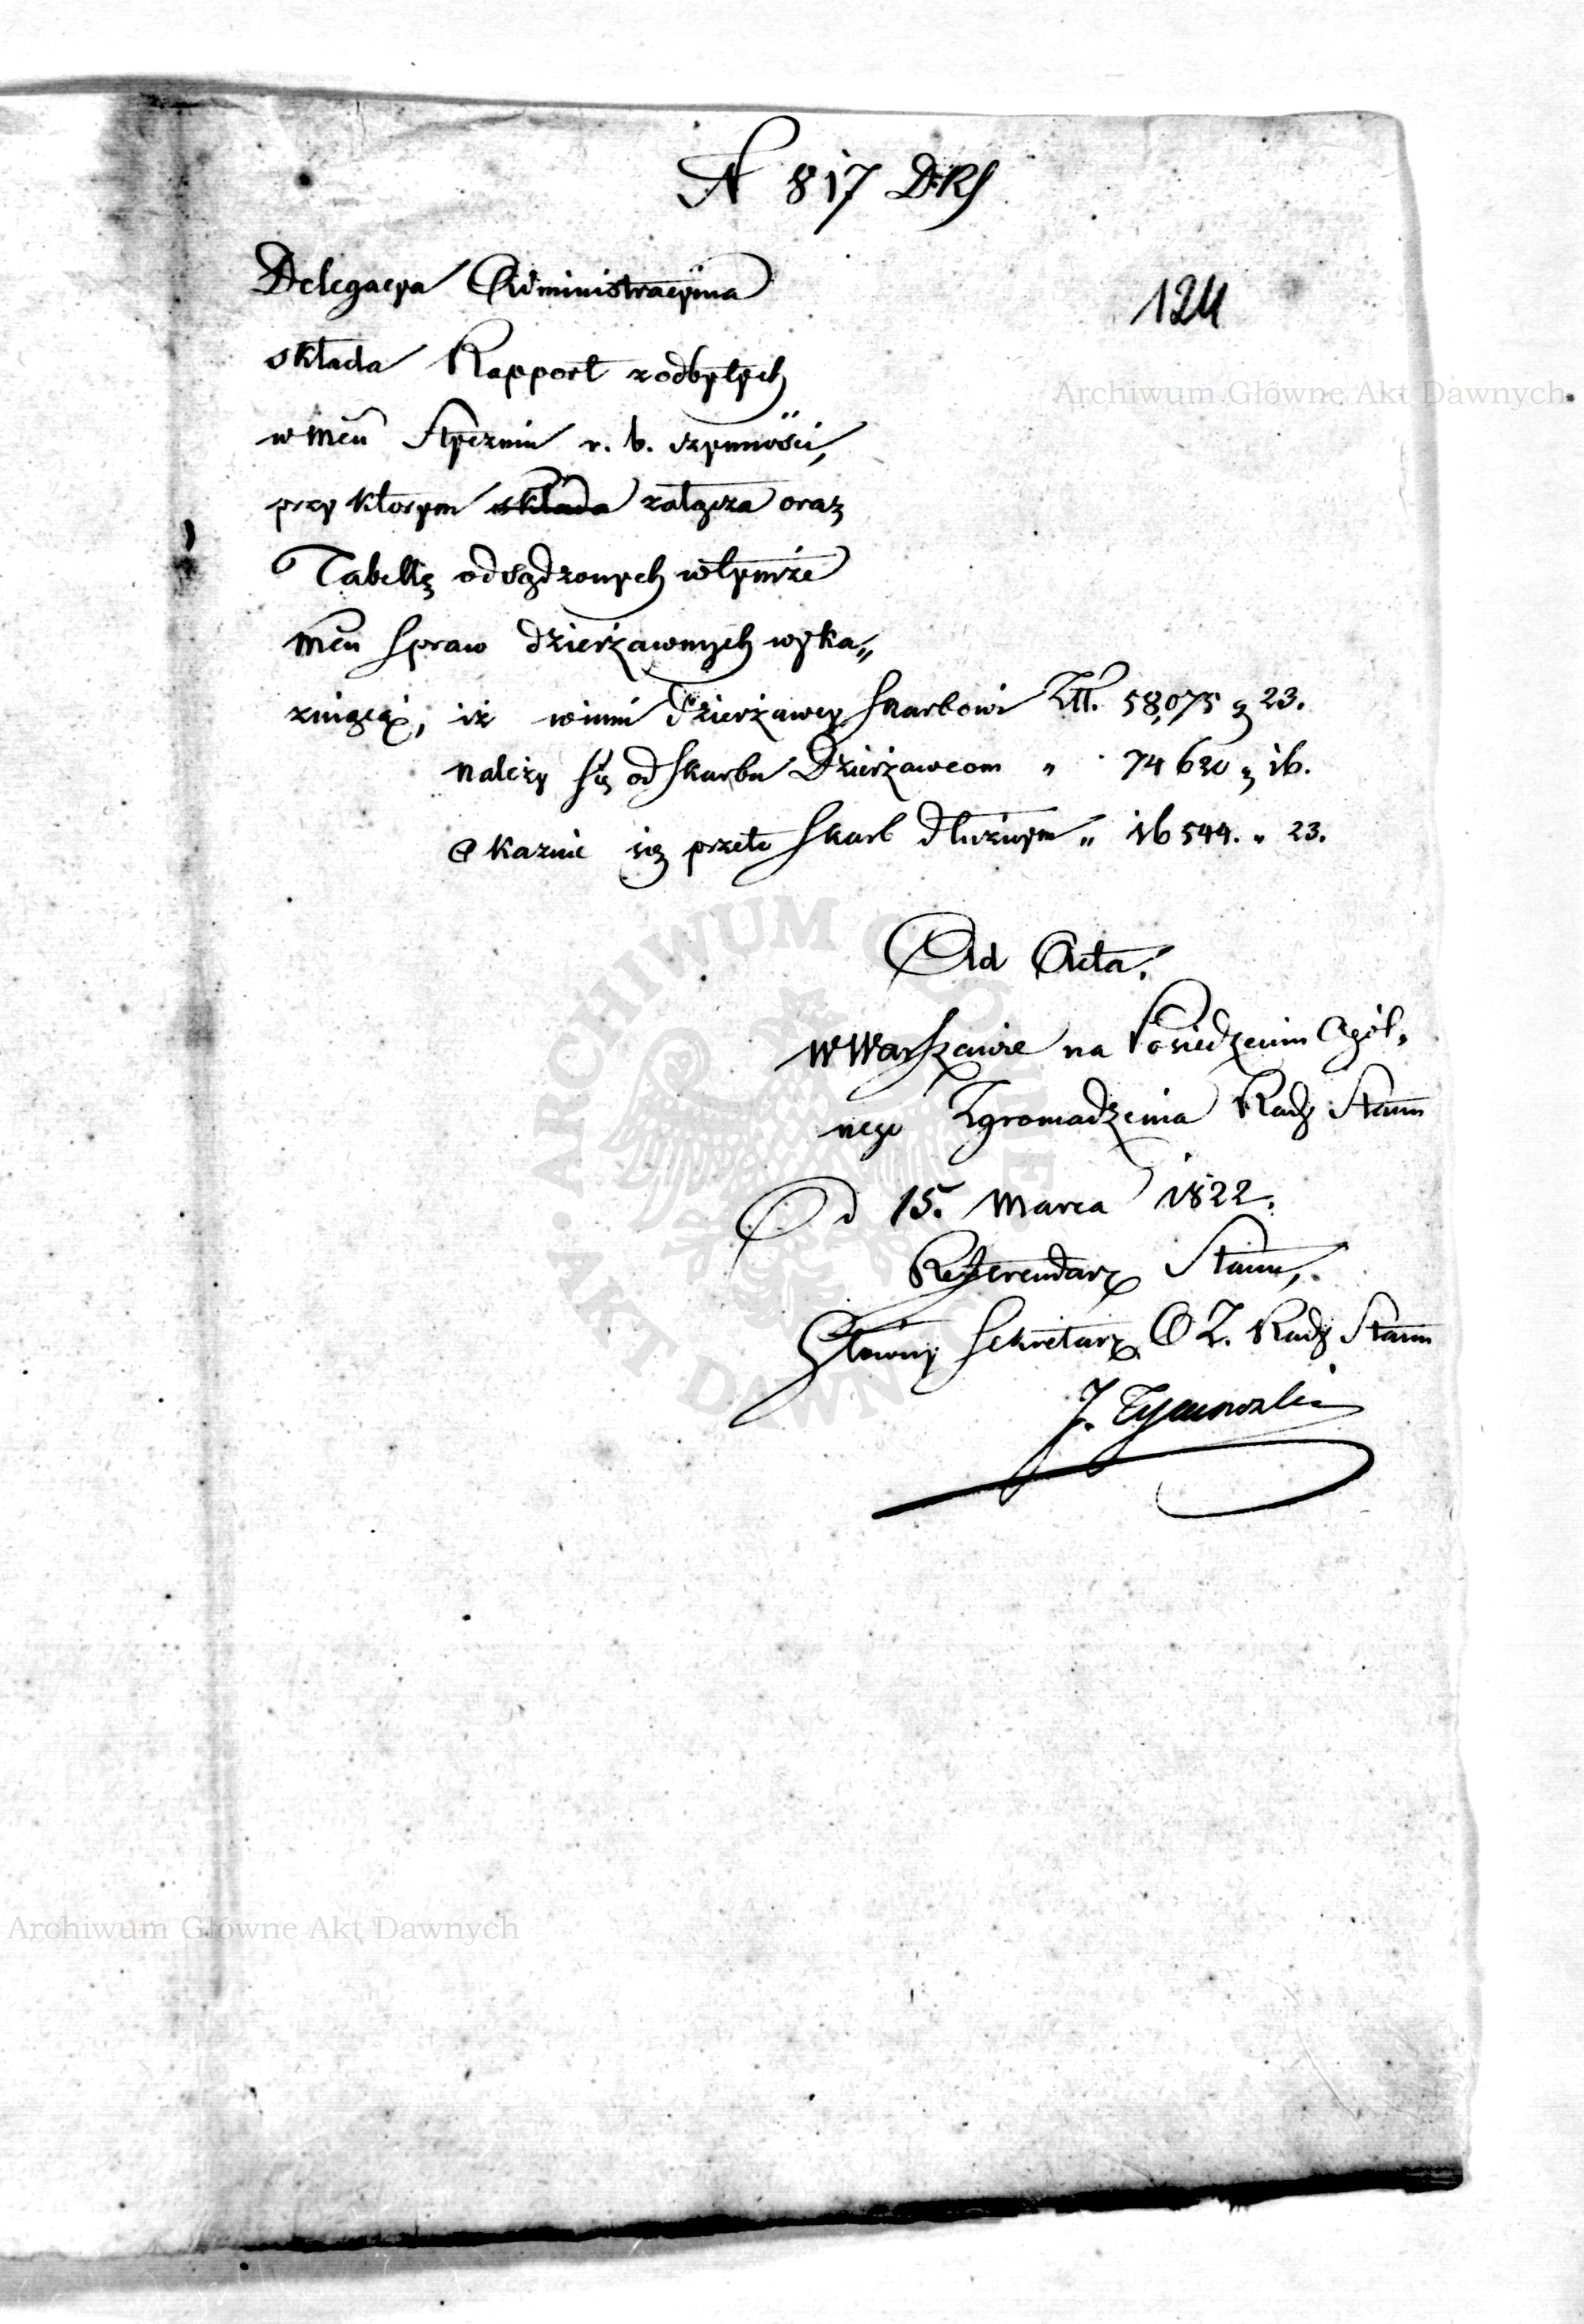 N 817 DRS
124
Delegacya Administracyina
składa Rapport z odbytych
w mcu Styczniu r. b. czynności,
przy którym składa załącza oraz
Tabellę odsądzonych w tymże
mcu spraw dzierżawnych wyka„
zuiącą, iż winni Dzierżawcy Skarbowi Złł. 58,075 g 23.
należy się od Skarbu Dzierżawcom „ 74 620 g 16.
Okazuie się przeto Skarb dłużnym „ 16 544. „ 23.
Ad Acta.
w Warszawie na Posiedzeniu Ogól„
nego Zgromadzenia Rady Stanu
D d 15. Marca 1822.
Referendarz Stanu,
Główny Sekretarz O Z. Rady Stanu
J. Tymowski
Archiwum Główne Akt Dawnych
ARCHIWUM GŁÓWNE • AKT DAWNYCH •
Archiwum Główne Akt Dawnych